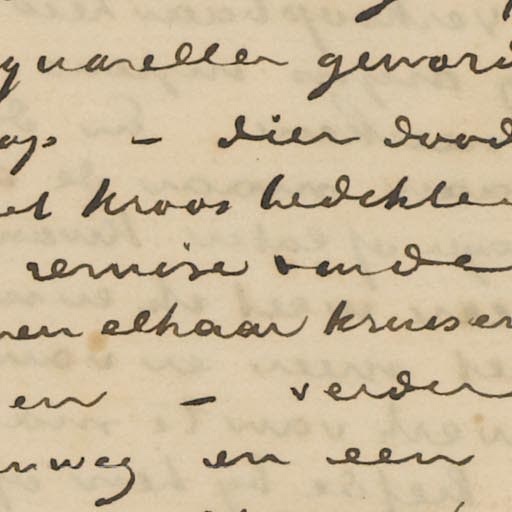 quarellen gewor
op — dien dood
et kroos bedekte
remise einde
en elkaar kruisen
en — verder
nweg en een